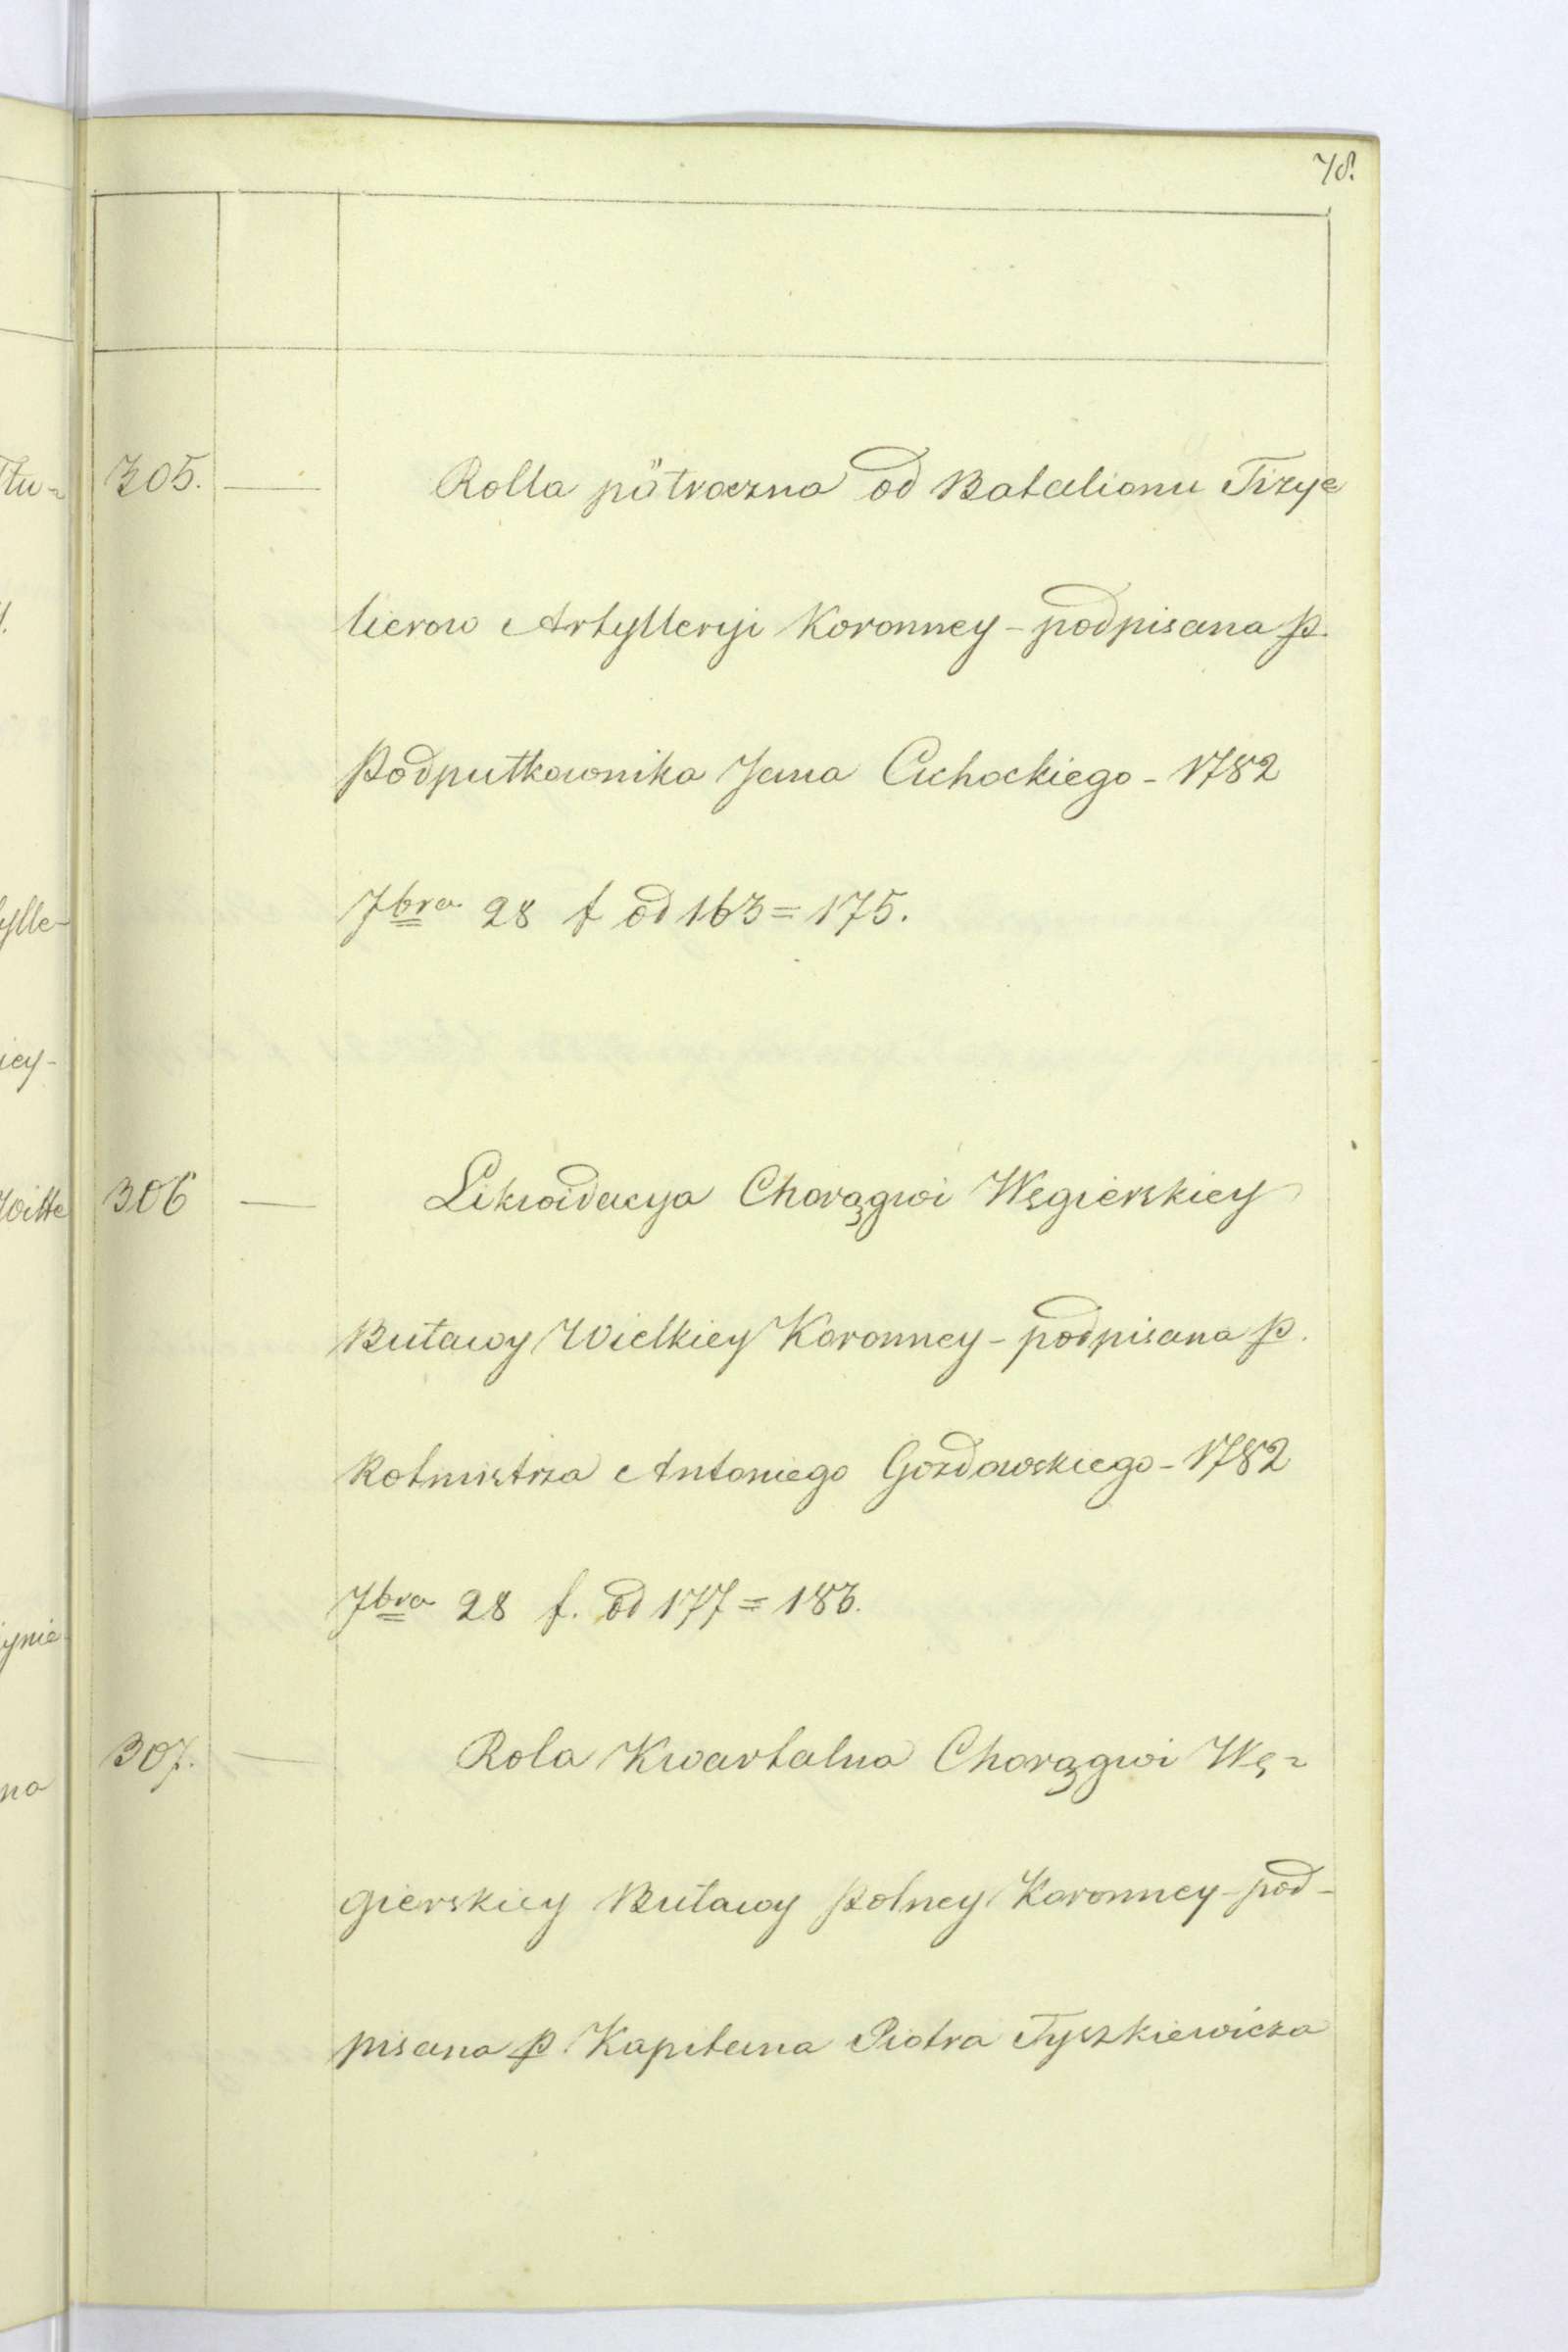 78.
305. — Rolla pòłroczna od Batalionu Fizye=
lierow Artylleryi Koronney - podpisana p.
Podpułkownika Jana Cichockiego - 1782
7bra 28 f od 163 = 175.
306 — Likwidacya Chorągwi Węgierskiey
Buławy Wielkiey Koronney - podpisana p.
Rotmistrza Antoniego Gozdowskiego - 1782
7bra 28 f. od 177 = 183.
307. — Rola Kwartalna Chorągwi Wę=
gierskiey Buławy Polney Koronney - pod-
pisana p. Kapitana Piotra Tyszkiewicza